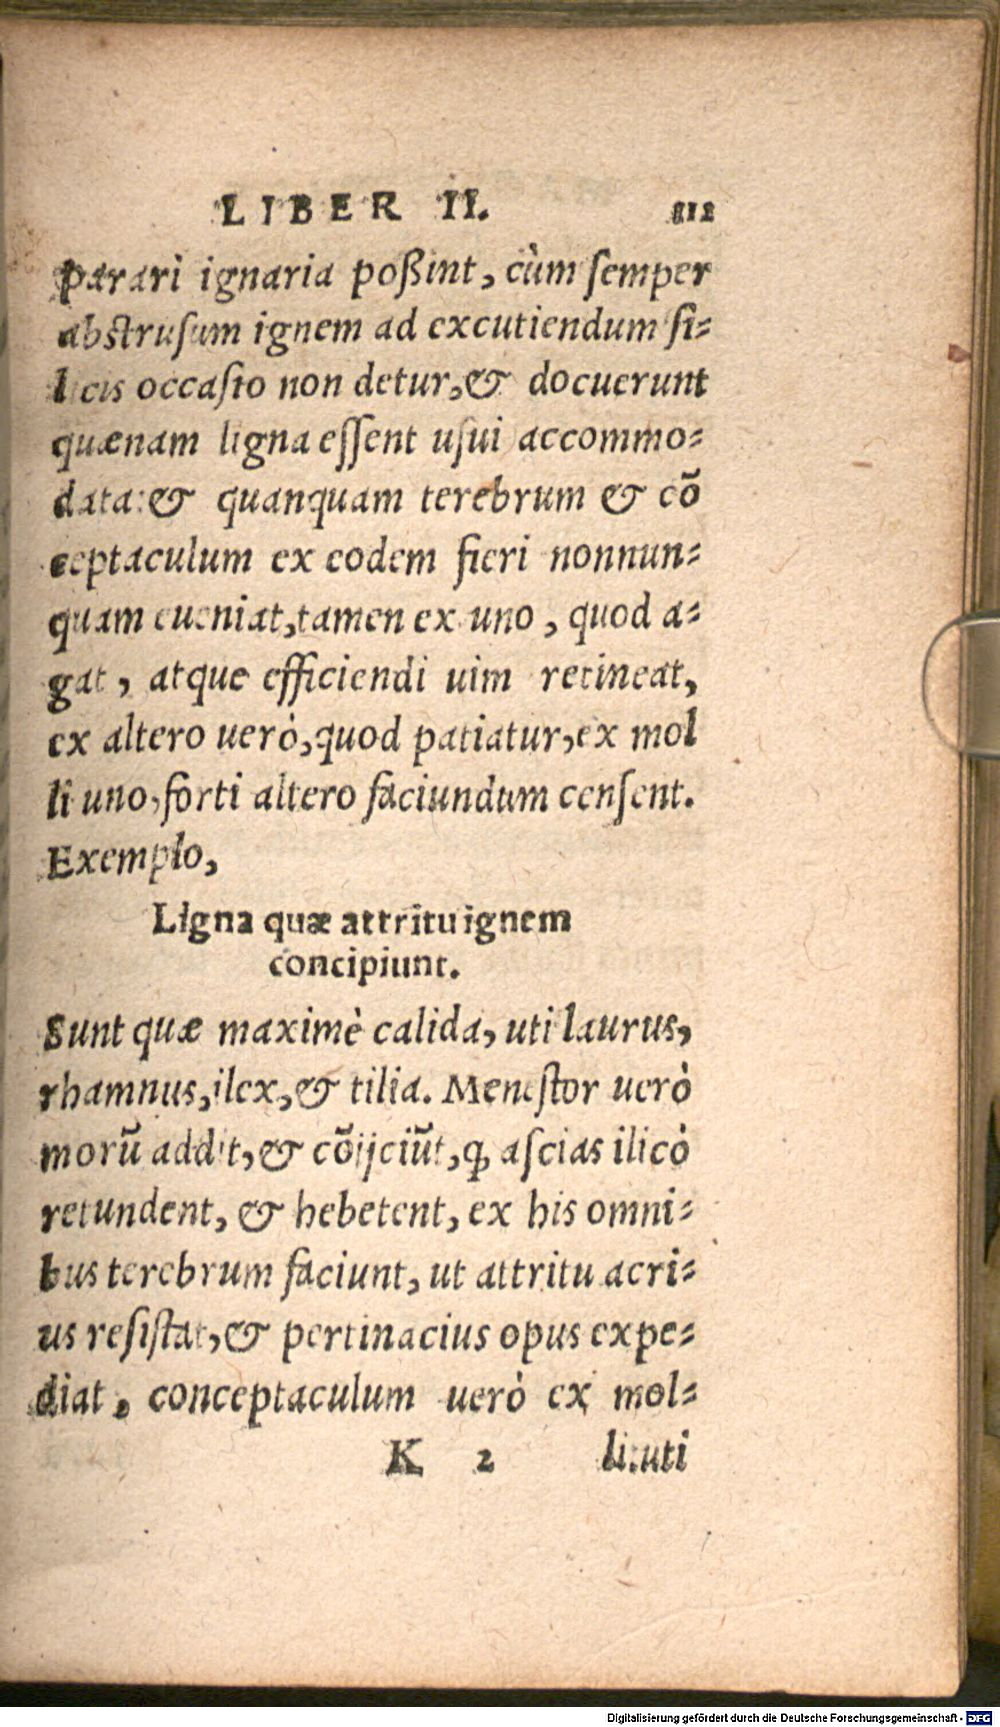 LIBER II. 112
parari ignaria poßint, cùm ſemper
abſtruſum ignem ad excutiendum ſi-
licis occaſio non detur, & docuerunt
quænam ligna eſſent uſui accommo-
data: & quanquam terebrum & cō
ceptaculum ex eodem fieri nonnun-
quam eueniat, tamen ex uno, quod a-
gat, atque efficiendi uim retineat,
ex altero uerò, quod patiatur, ex mol
li uno, forti altero faciundum cenſent.
Exemplo,
Ligna quæ attritu ignem
concipiunt.
Sunt quæ maximè calida, uti laurus,
rhamnus, ilex, & tilia. Meneſtor uerò
morũ addit, & cōijciũt, ꝙ aſcias ilicò
retundent, & hebetent, ex his omni-
bus terebrum faciunt, ut attritu acri-
us reſiſtat, & pertinacius opus expe-
diat, conceptaculum uerò ex mol-
K 2 li: uti
Digitalisierung gefördert durch die Deutsche Forschungsgemeinschaft - DFG